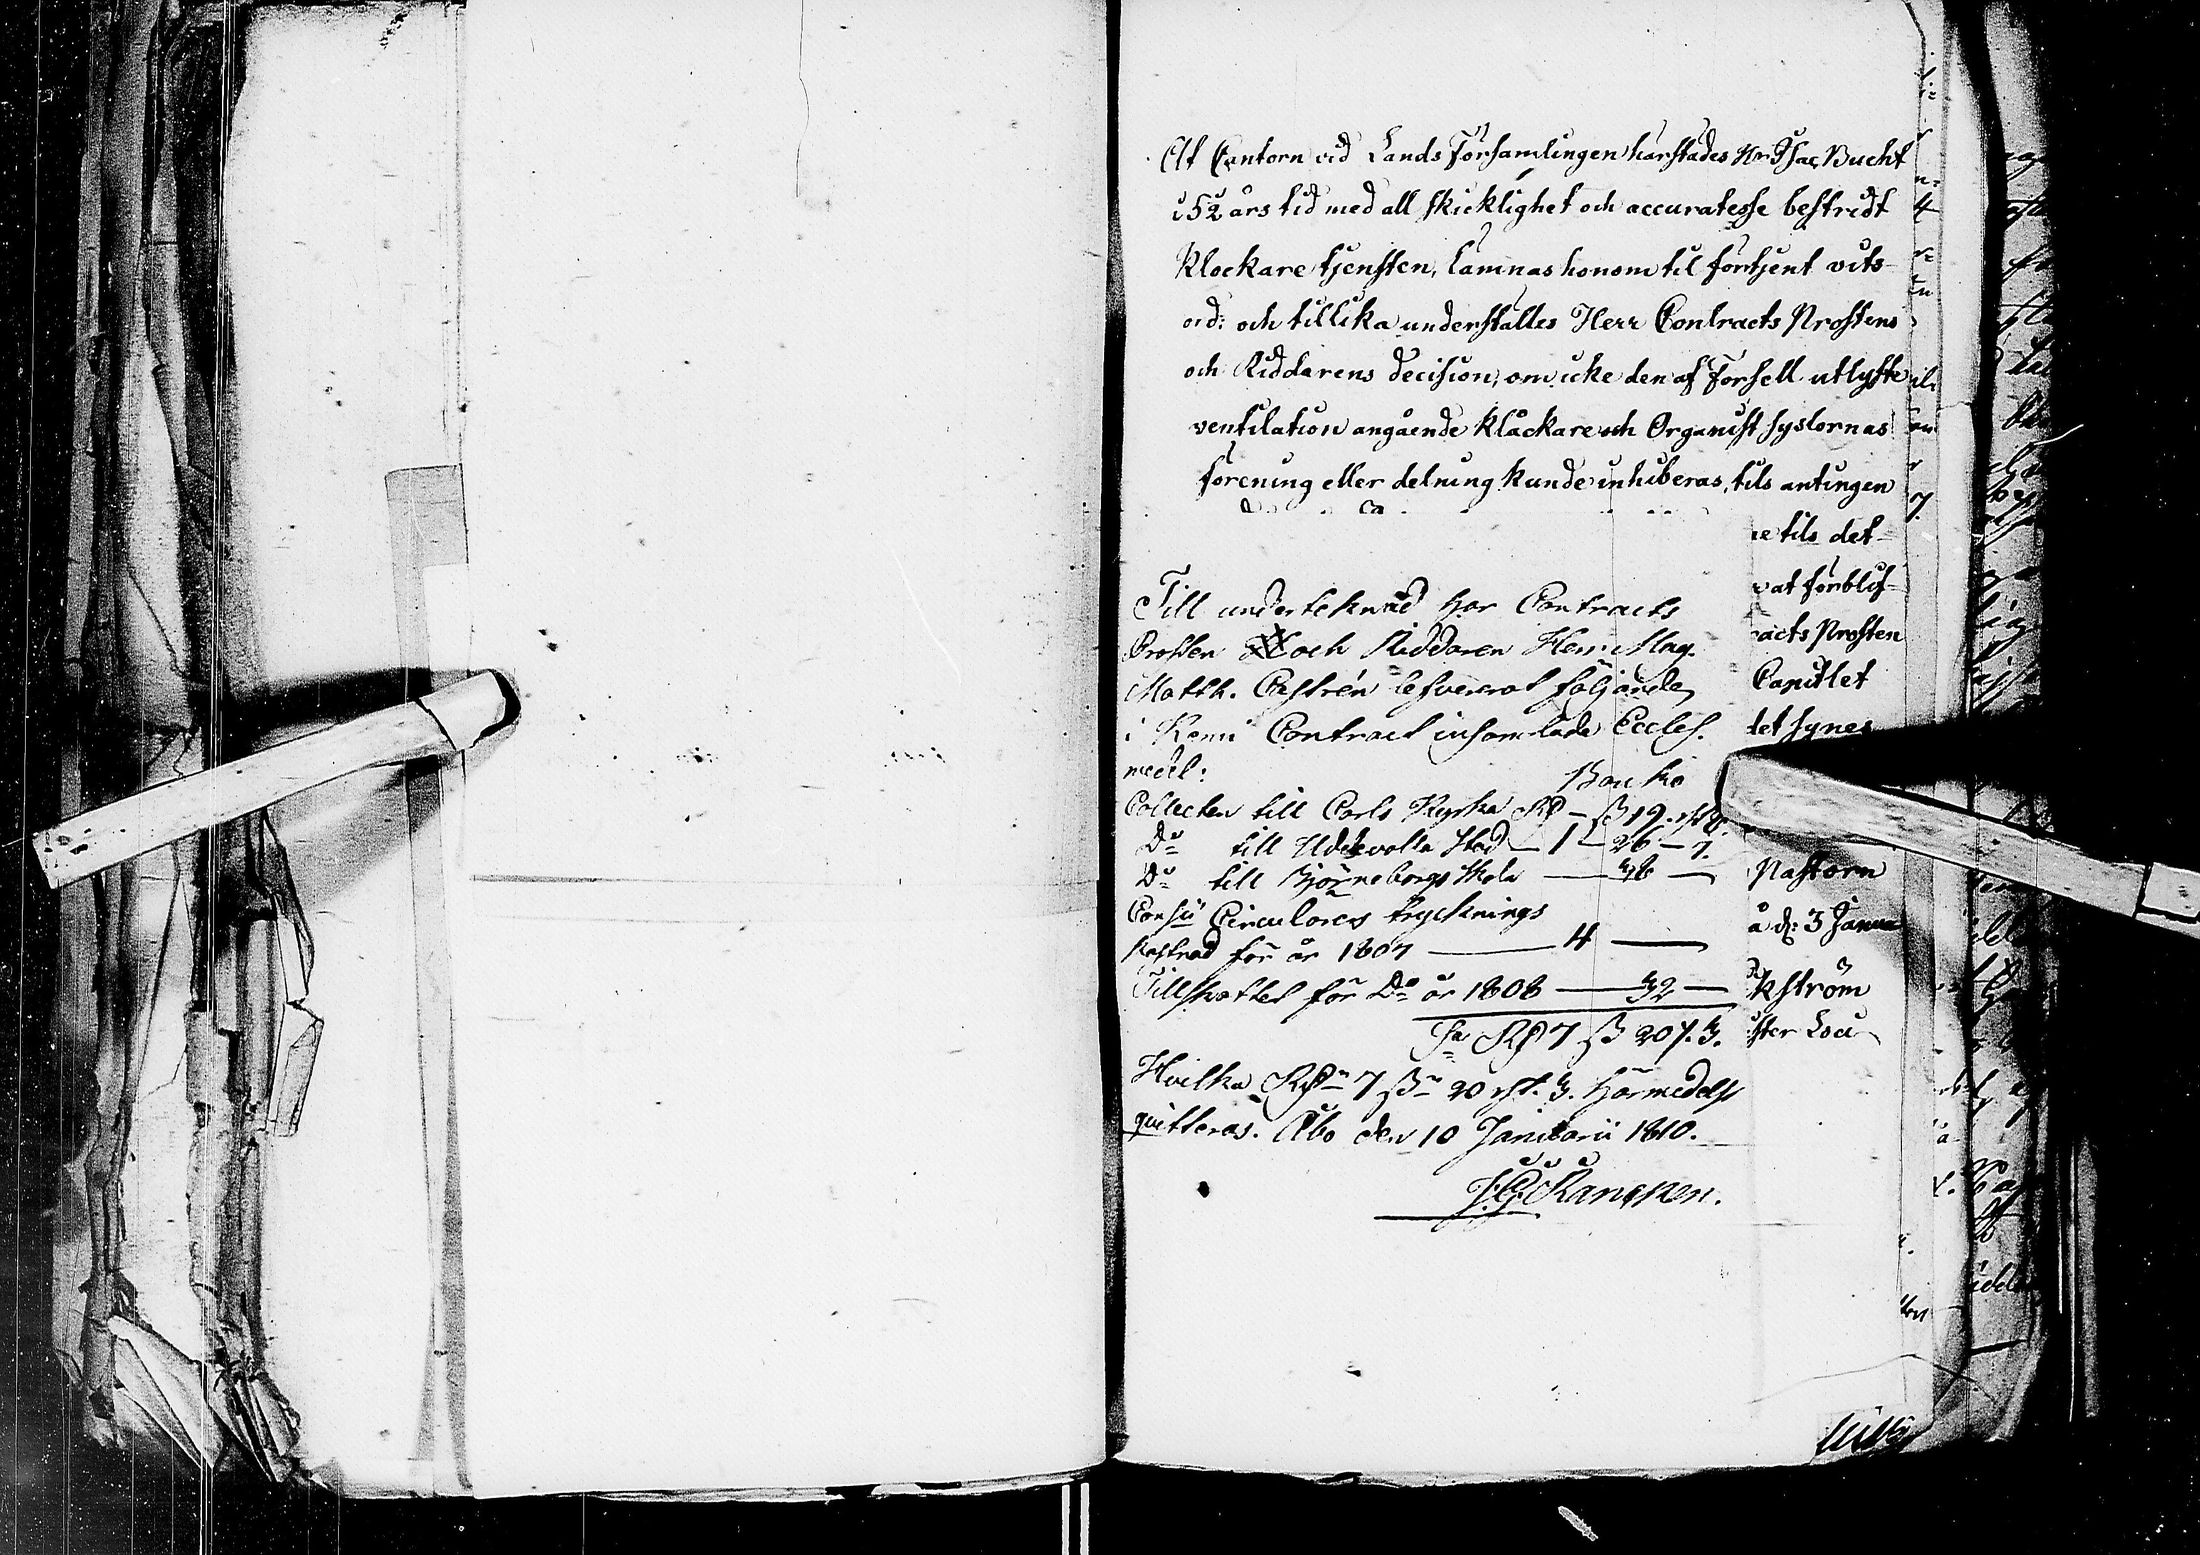 At Cantorn vid Lands Församlingen härstädes Hr Isac Bucht
i 52 års tid med all skicklighet och accuratesse bestridt
Klockare tjensten, lämnas honom til förtjent vits-
ord: och tillika underställes Herr Contracts Prostens
och Riddarens decision, om icke den af Forsell utlyste
ventilation angående Klåckare och Organist syslornas
förening eller delning kunde inhiberas, tils antingen
e tils det
vat förblif-
acts Prosten
Capitlet
det synes
Pastorn
a d: 3 Janua
kström
Till underteknad har Contracts
Prosten och Riddaren Herr Mag.
Matth. Castrén lefvererat följande
i Kemi Contract insamlade Eccles.
medel:
Banko
Collecten till Carls Kyrka Rd — ß 19. rst 8.
Do till Uddevalla Stad — 1 — 26 — 7.
Do till Björneborgs Skola — 36 —
Consii Circulairers trycknings
kostnad för år 1807 — 4 —
Tillskottet för Do år 1808 — 32 —
Sa Rd 7 ß 20 r. 3.
Hvilka Rdr 7 ßr 20 rst. 3. härmedelst
quitteras. Åbo den 10 Januarii 1810.